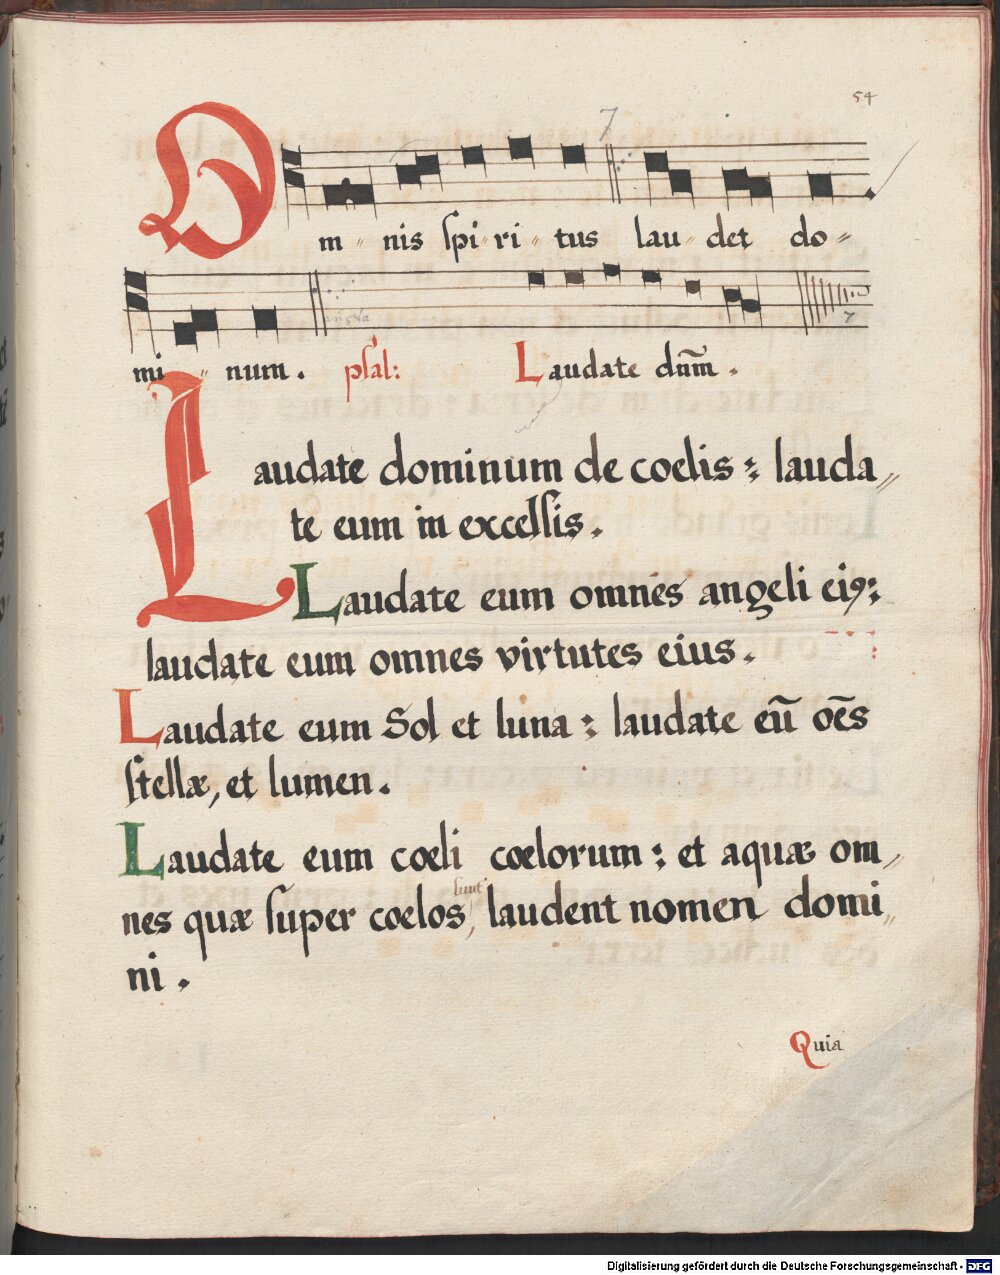 54
7
Om〃nis spi〃ri〃tus lau〃det do〃
mi〃num. psal: Laudate dn̄m.
7
Laudate dominum de coelis: lauda〃
te eum in excelsis.
Laudate eum omnes angeli ei9:
laudate eum omnes virtutes eius.
Laudate eum Sol et luna: laudate eū oēs
stellæ, et lumen.
Laudate eum cœli cœlorum: et aquæ om〃
sunt
nes quæ super cœlos, laudent nomen domi〃
ni.
Quia
Digitalisierung gefördert durch die Deutsche Forschungsgemeinschaft - DFG